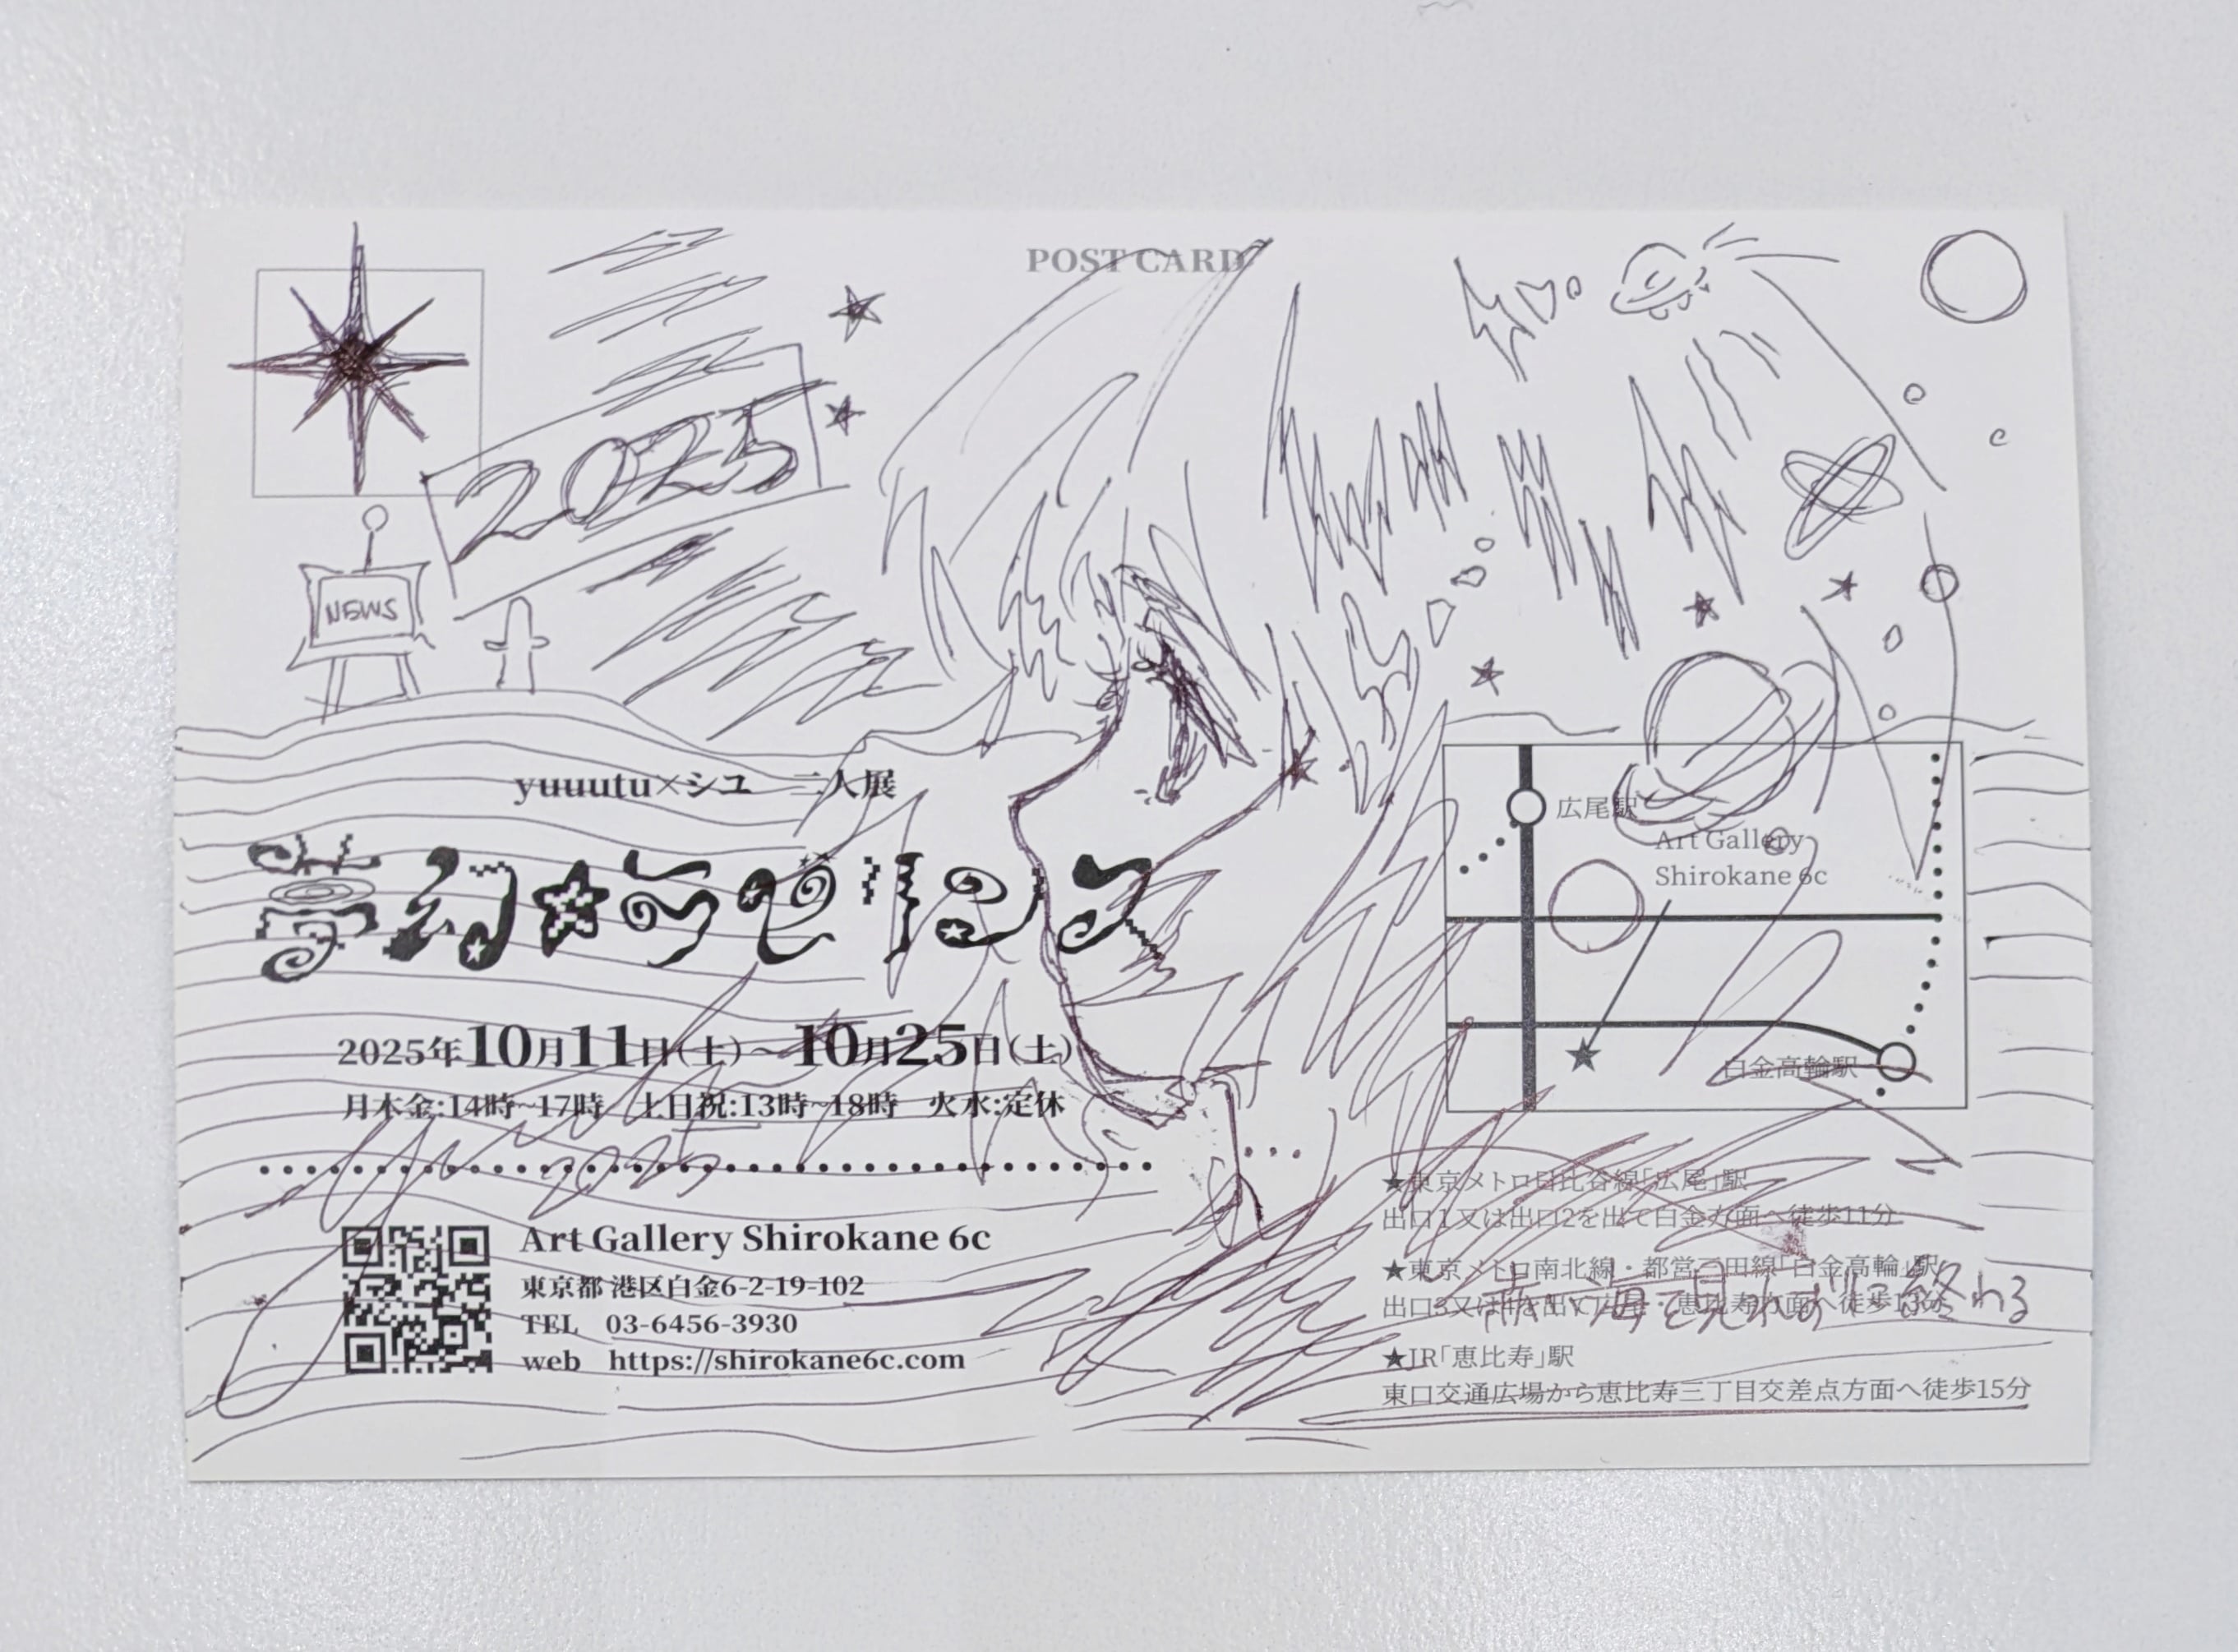 POST CARD
2025
NEWS
yuuutu×シユ 二人展
夢幻★ラビリンス
2025年10月11日(土)~10月25日(土)
月木金:14時~17時 土日祝:13時~18時 火水:定休
2025
Art Gallery Shirokane 6c
東京都 港区白金6-2-19-102
TEL 03-6456-3930
web https://shirokane6c.com
広尾駅
Art Gallery
Shirokane 6c
白金高輪駅
★東京メトロ日比谷線「広尾」駅
出口1又は出口2を出て白金方面へ徒歩11分
★東京メトロ南北線・都営三田線「白金高輪」駅
出口3又は4を出て・恵比寿方面へ徒歩
海で見れば終わる
★JR「恵比寿」駅
東口交通広場から恵比寿三丁目交差点方面へ徒歩15分